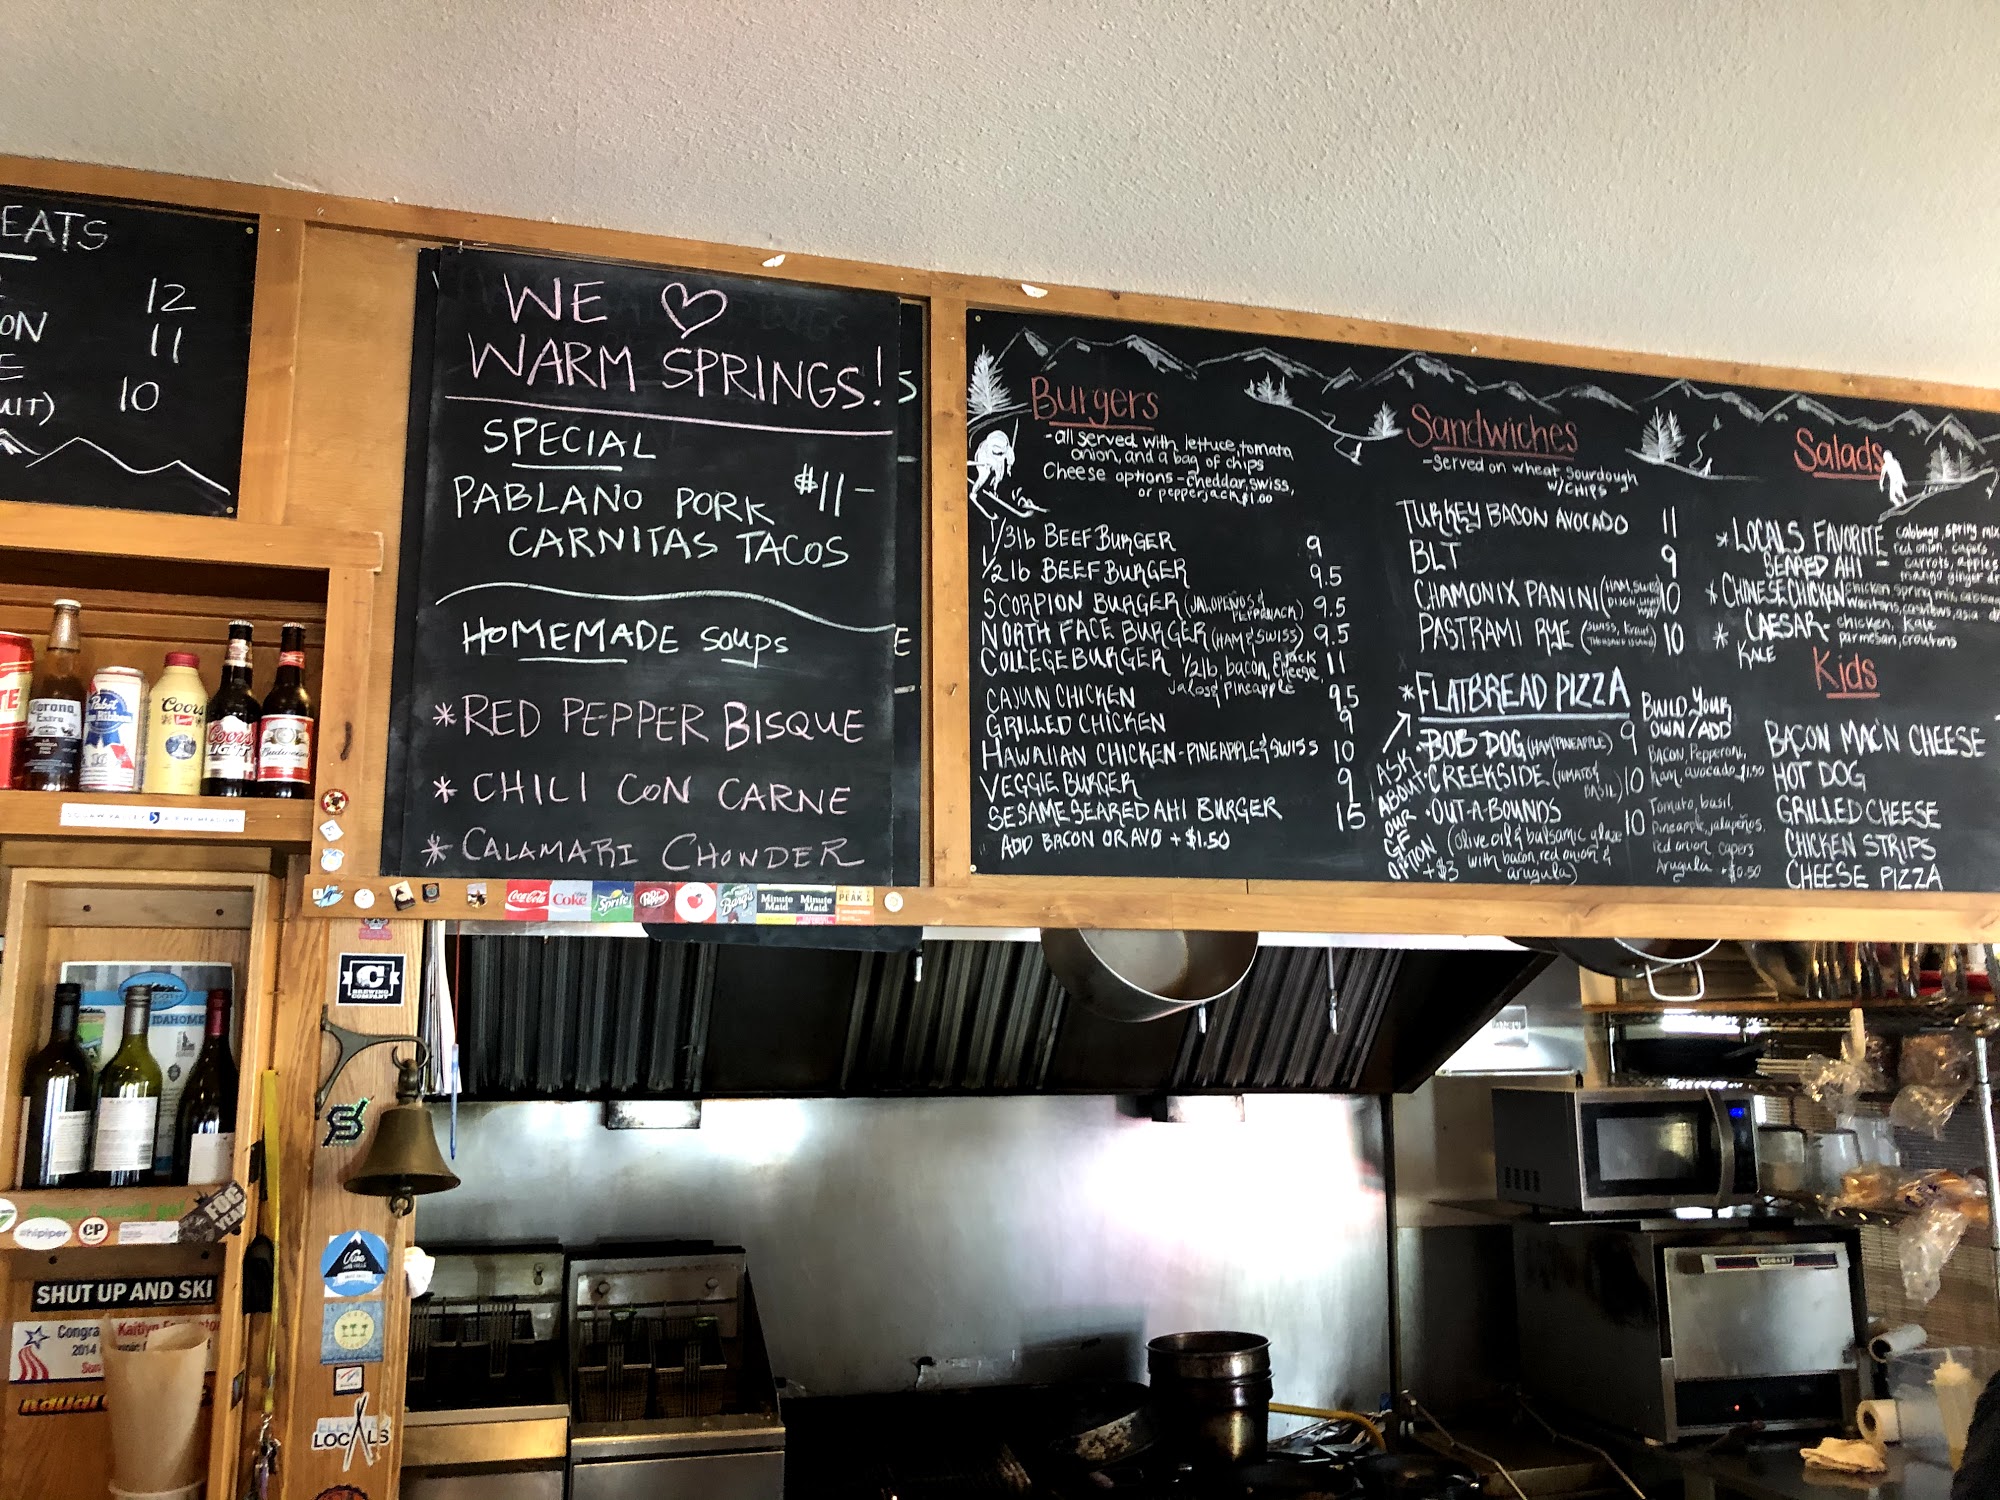 EATS
12
ON 11
E
UIT) 10
WE ♡
WARM SPRINGS!
SPECIAL
PABLANO PORK $11-
CARNITAS TACOS
HOMEMADE SOUPS
* RED PEPPER BISQUE
* CHILI CON CARNE
* CALAMARI CHOWDER
Burgers
- all served with lettuce, tomato,
onion, and a bag of chips
Cheese options - cheddar, swiss,
or pepperjack $1.00
1/3lb BEEF BURGER 9
1/2lb BEEF BURGER 9.5
SCORPION BURGER (JALOPEÑOS & PEPPERJACK) 9.5
NORTH FACE BURGER (HAM & SWISS) 9.5
COLLEGE BURGER 1/2lb, bacon, pjack cheese, 11
jalos & pineapple
CAJUN CHICKEN 9.5
GRILLED CHICKEN 9
HAWAIIAN CHICKEN - PINEAPPLE & SWISS 10
VEGGIE BURGER 9
SESAME SEARED AHI BURGER 15
ADD BACON OR AVO + $1.50
Sandwiches
- served on wheat, sourdough
w/ CHIPS
TURKEY BACON AVOCADO 11
BLT 9
CHAMONIX PANINI (HAM, SWISS, 10
PASTRAMI RYE (SWISS, KRAUT, 10
* FLATBREAD PIZZA
· BOB DOG (HAM & PINEAPPLE) 9
· CREEKSIDE (TOMATO & BASIL) 10
· OUT-A-BOUNDS 10
(olive oil & balsamic glaze
with bacon, red onion &
arugula)
ASK
ABOUT
OUR
GF
OPTION +$3
BUILD YOUR
OWN/ADD
Bacon, Pepperoni,
ham, avocado $1.50
Tomato, basil,
Pineapple, jalapeños,
red onion, capers
Arugula + $0.50
Salads
* LOCALS FAVORITE cabbage, spring mix
SEARED AHI - red onion, capers
carrots, apples
mango ginger
* CHINESE CHICKEN chicken, spring mix,
wontons, cashews, asia
* CAESAR - chicken, kale
KALE parmesan, croutons
Kids
BACON MAC'N CHEESE
HOT DOG
GRILLED CHEESE
CHICKEN STRIPS
CHEESE PIZZA
Corona
Extra
Pabst
Blue Ribbon
Coors
Coors
LIGHT
Budweiser
Coca-Cola
Coke
Sprite
Dr Pepper
Barq's
Minute
Maid
Minute
Maid
PEAK
C
BREWING
COMPANY
IDAHOME
#hipiper
CP
SHUT UP AND SKI
Congra
Kaitlyn
2014
Sun
LOCALS
HOBART